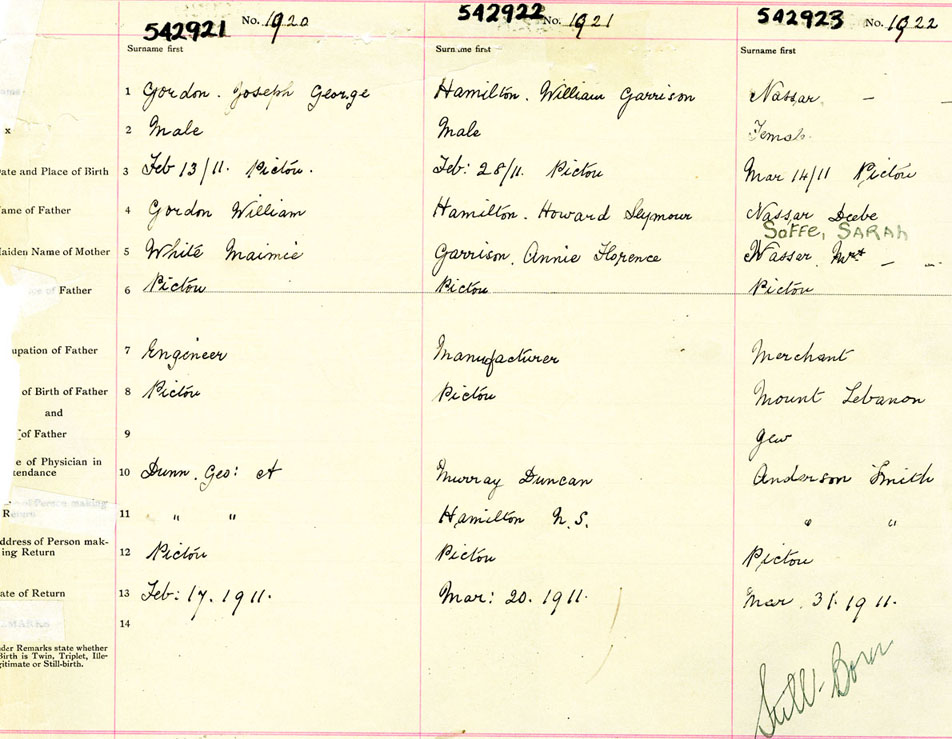 542921 No. 1920
542922 No. 1921
542923 No. 1922
Surname first
Surname first
Surname first
1 Gordon. Joseph George
Hamilton. William Garrison
Nassar. – –
x 2 Male
Male
Female
ate and Place of Birth 3 Feb 13/11. Pictou.
Feb: 28/11 Pictou
Mar 14/11 Pictou
ame of Father 4 Gordon William
Hamilton. Howard Seymour
Nassar Deebe
SoFFe, SARAH
Maiden Name of Mother 5 White Maimie
Garrison. Annie Florence
Nassar Mrs – –
of Father 6 Pictou
Pictou
Pictou
upation of Father 7 Engineer
Manufacturer
Merchant
of Birth of Father 8 Pictou
Pictou
Mount Lebanon
and
of Father 9
Jew
e of Physician in
tendance 10 Dunn. Geo: A
Murray Duncan
Anderson Smith
of Person making
Return 11 " "
Hamilton H.S.
" "
ddress of Person mak-
ing Return 12 Pictou
Pictou
Pictou
ate of Return 13 Feb: 17. 1911.
Mar: 20. 1911.
Mar. 31. 1911.
14
der Remarks state whether
Birth is Twin, Triplet, Ille-
gitimate or Still-birth.
Still-Born